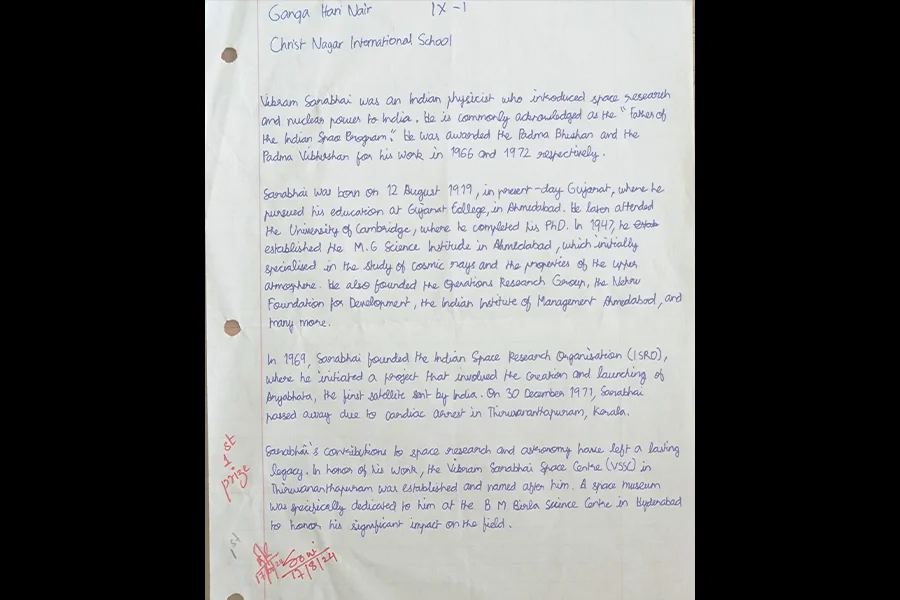 Ganga Hari Nair IX-1
Christ Nagar International School
Vikram Sarabhai was an Indian physicist who introduced space research
and nuclear power to India. He is commonly acknowledged as the "Father of
the Indian Space Program." He was awarded the Padma Bhushan and the
Padma Vibhushan for his work in 1966 and 1972 respectively.
Sarabhai was born on 12 August 1919, in present-day Gujarat, where he
pursued his education at Gujarat College, in Ahmedabad. He later attended
the University of Cambridge, where he completed his PhD. In 1947, he estab
established the M.G Science Institude in Ahmedabad, which initially
specialised in the study of cosmic rays and the properties of the upper
atmosphere. He also founded the Operations Research Group, the Nehru
Foundation for Development, the Indian Institute of Management Ahmedabad, and
many more.
In 1969, Sarabhai founded the Indian Space Research Organisation (ISRO),
where he initiated a project that involved the creation and launching of
Aryabhata, the first satellite sent by India. On 30 December 1971, Sarabhai
passed away due to cardiac arrest in Thiruvananthapuram, Kerala.
Sarabhai's contributions to space research and astronomy have left a lasting
legacy. In honor of his work, the Vikram Sarabhai Space Centre (VSSC) in
Thiruvananthapuram was established and named after him. A space museum
was specifically dedicated to him at the B M Birla Science Centre in Hyderabad
to honor his significant impact on the field.
1st
prize
1st
17/8/24